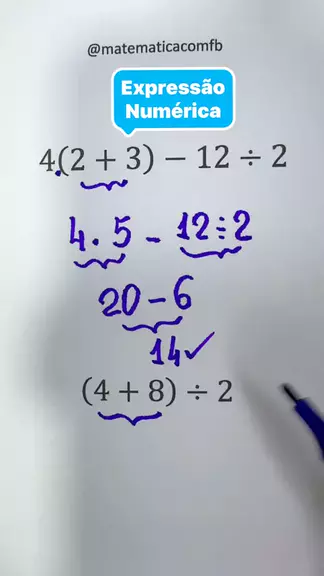 @matematicacomfb
Expressão
Numérica
4.(2 + 3) − 12 ÷ 2
4 . 5 − 12 ÷ 2
20 − 6
14 ✓
(4 + 8) ÷ 2